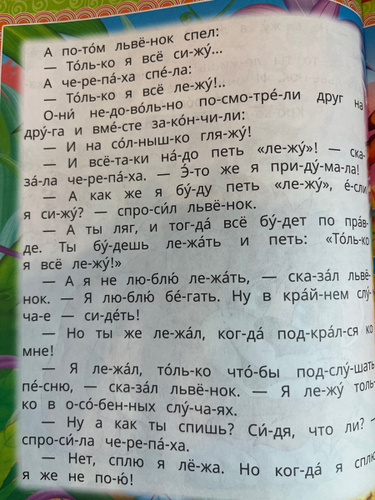 А по-то́м льво́-нок спел:
— То́ль-ко я всё си-жу́...
А че-ре-па́-ха спе́-ла:
— То́ль-ко я всё ле-жу́!..
О-ни́ не-до-во́ль-но по-смо-тре́-ли друг на
дру́-га и вме́с-те за-ко́н-чи-ли:
— И на со́л-ныш-ко гля-жу́!
— И всё-та-ки на́-до петь «ле-жу́»! — ска-
за́-ла че-ре-па́-ха. — Э́-то же я при-ду́-ма-ла!
— А как же я бу́-ду петь «ле-жу́», е́с-ли
я си-жу́? — спро-си́л льво́-нок.
— А ты ляг, и тог-да́ всё бу́-дет по пра́в-
де. Ты бу́-дешь ле-жа́ть и петь: «То́ль-ко
я всё ле-жу́!»
— А я не лю-блю́ ле-жа́ть, — ска-за́л львё-
нок. — Я лю-блю́ бе́-гать. Ну в кра́й-нем слу́-
ча-е — си-де́ть!
— Но ты же ле-жа́л, ког-да́ под-кра́л-ся ко
мне!
— Я ле-жа́л, то́ль-ко что́-бы под-слу́-шать
пе́-сню, — ска-за́л львё-нок. — Я ле-жу́ толь-
ко в о-со́-бен-ных слу́-ча-ях.
— Ну а как ты спишь? Си́-дя, что ли? —
спро-си́-ла че-ре-па́-ха.
— Нет, сплю я лё-жа. Но ког-да́ я сплю
я же не по-ю́!